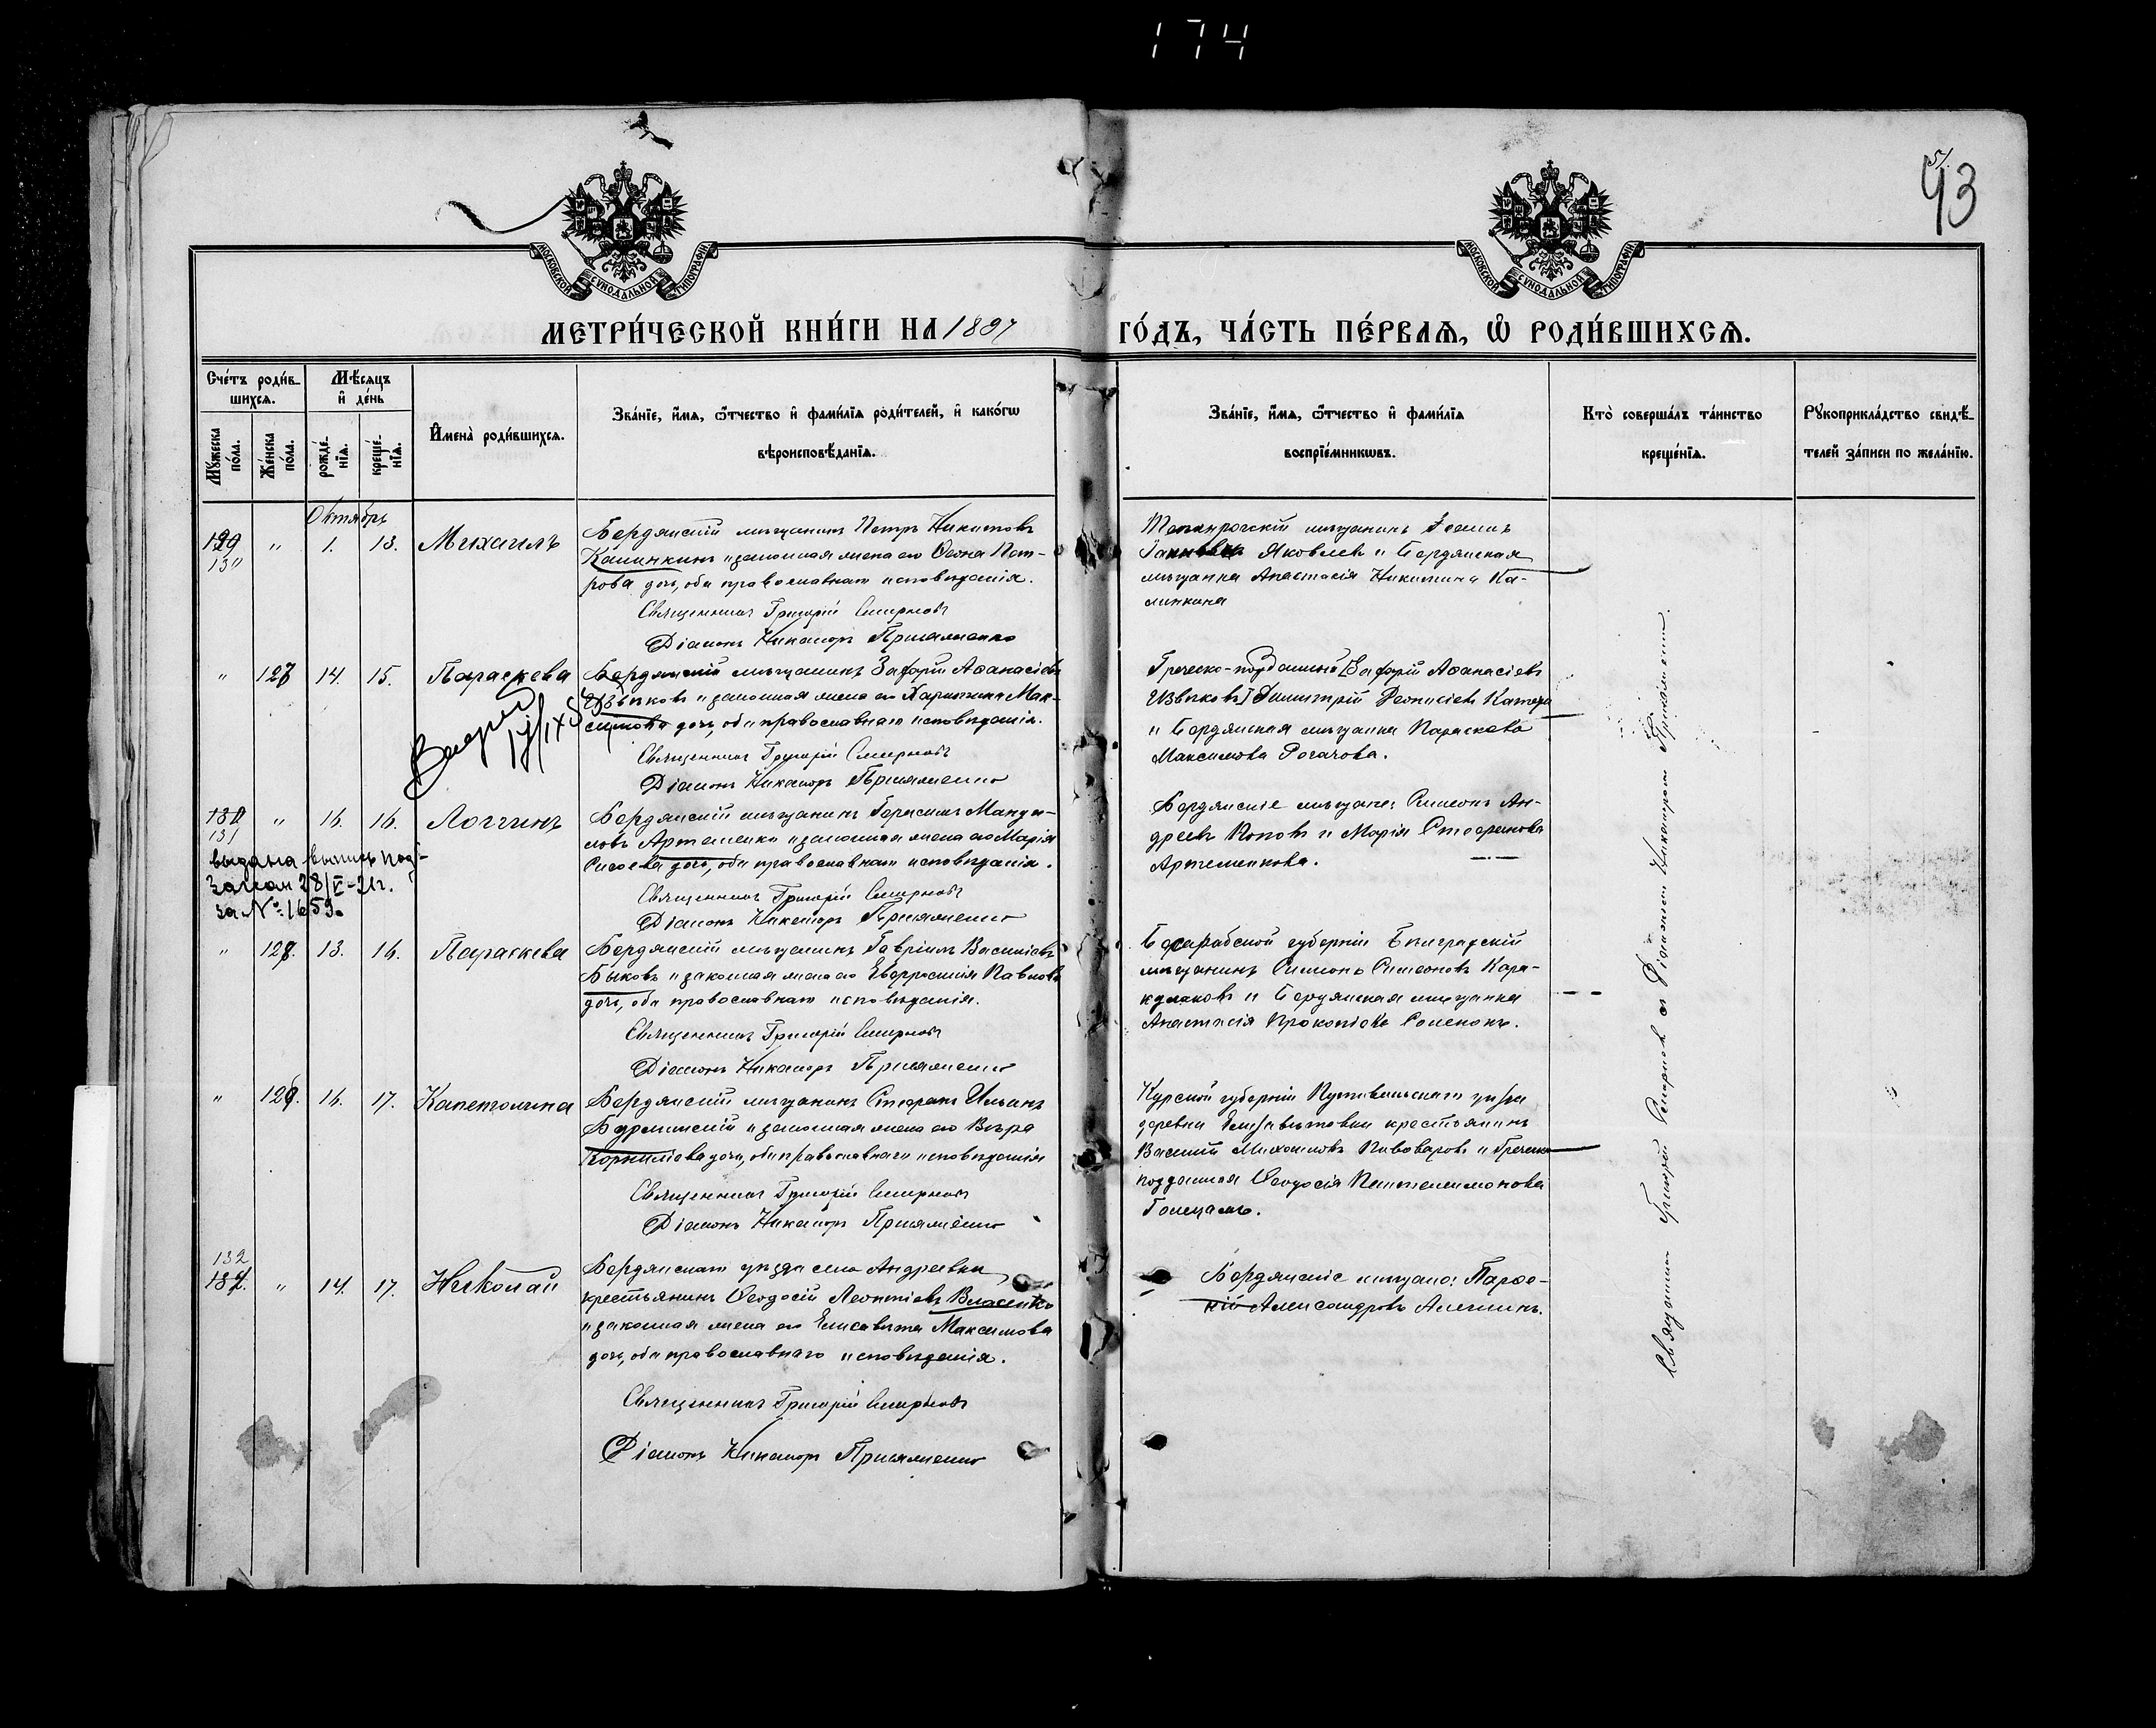 174
93
МОСКОВСКОЙ СѴНОДАЛЬНОЙ ТИПОГРАФІИ
МОСКОВСКОЙ СѴНОДАЛЬНОЙ ТИПОГРАФІИ
МЕТРИ́ЧЕСКОЙ КНИ́ГИ НА 1897 ГО́ДЪ, ЧА́СТЬ ПЕ́РВАѦ, Ѡ҆ РОДИ́ВШИХСѦ.
Счéтъ роди́в-
шихсѧ.
Мѣ́сѧцъ
и҆ дéнь
Мꙋ́жеска
по́ла.
Жéнска
по́ла.
рождé-
нїѧ.
крещé-
нїѧ.
И҆мена̀ роди́вшихсѧ.
Звáнїе, и҆́мѧ, ѻ҆́тчество и҆ фами́лїѧ роди́телей, и҆ како́гѡ
вѣроисповѣ́данїѧ.
Звáнїе, и҆́мѧ, ѻ҆́тчество и҆ фами́лїѧ
воспрїе́мникѡвъ.
Кто̀ совершáлъ тáинство
крещéнїѧ.
Рꙋкоприклáдство свидѣ́-
телей зáписи по желáнїю.
Октябрь
129 " 1. 13. Михаилъ
130
Бердянскій мѣщанинъ Петръ Никитовъ
Калинкинъ и законная жена его Ѳеона Пет-
рова дочь, оба православнаго исповѣданія.
Священникъ Григорій Смирновъ
Діаконъ Никаноръ Присяженко
Таганрогскій мѣщанинъ
Яковлевъ и Бердянская
мѣщанка Анастасія Никитина Ка-
линкина
" 127 14. 15. Параскева
Бердянскій мѣщанинъ Зафирій Аѳанасіевъ
Извѣковъ и законная жена его Харитина Мак-
симова дочь, оба православнаго исповѣданія.
Священникъ Григорій Смирновъ
Діаконъ Никаноръ Присяженко
Греческо-подданный [Зафирій Аѳанасіевъ
Извѣковъ] Димитрій Деонисіевъ
и Бердянская мѣщанка Параскева
Максимова Рогачова.
131 " 16. 16. Логгинъ
выдана выпись под
28/V-21г.
за № 1659.
Бердянскій мѣщанинъ Герасимъ
Артеменко и законная жена его Марія
Сисоева дочь, оба православнаго исповѣданія.
Священникъ Григорій Смирновъ
Діаконъ Никаноръ Присяженко
Бердянскіе мѣщане: Симеонъ Ан-
дреевъ Поповъ и Марія Стефанова
Артеменкова.
" 128. 13. 16. Параскева
Бердянскій мѣщанинъ Гавріилъ Василіевъ
Быковъ и законная жена его Евфросинія Павлова
дочь, оба православнаго исповѣданія.
Священникъ Григорій Смирновъ
Діаконъ Никаноръ Присяженко
Бесарабской губерніи Болградскій
мѣщанинъ Симеонъ Симеоновъ Кара-
и Бердянская мѣщанка
Анастасія Прокопіева
" 129. 16. 17. Капетолина
Бердянскій мѣщанинъ Стефанъ Ильинъ
и законная жена его Вѣра
Корниліева дочь, оба православнаго исповѣданія
Священникъ Григорій Смирновъ
Діаконъ Никаноръ Присяженко
Курской губерніи Путивльскаго уѣзда
деревни Елизаветовки крестьянинъ
Василій Михаиловъ Пивоваровъ и Греческо
подданная Ѳеодосія Пантелеимонова
132
" 14. 17. Николай
Бердянскаго уѣзда села Андреевки
крестьянинъ Ѳеодосій Леонтіевъ Власенко
и законная жена его Елисавета Максимова
дочь, оба православнаго исповѣданія.
Священникъ Григорій Смирновъ
Діаконъ Никаноръ Присяженко
Бердянскіе мѣщане: Парѳе-
ній Александровъ
Священникъ Григорій Смирновъ съ Діакономъ Никаноромъ Присяженко.